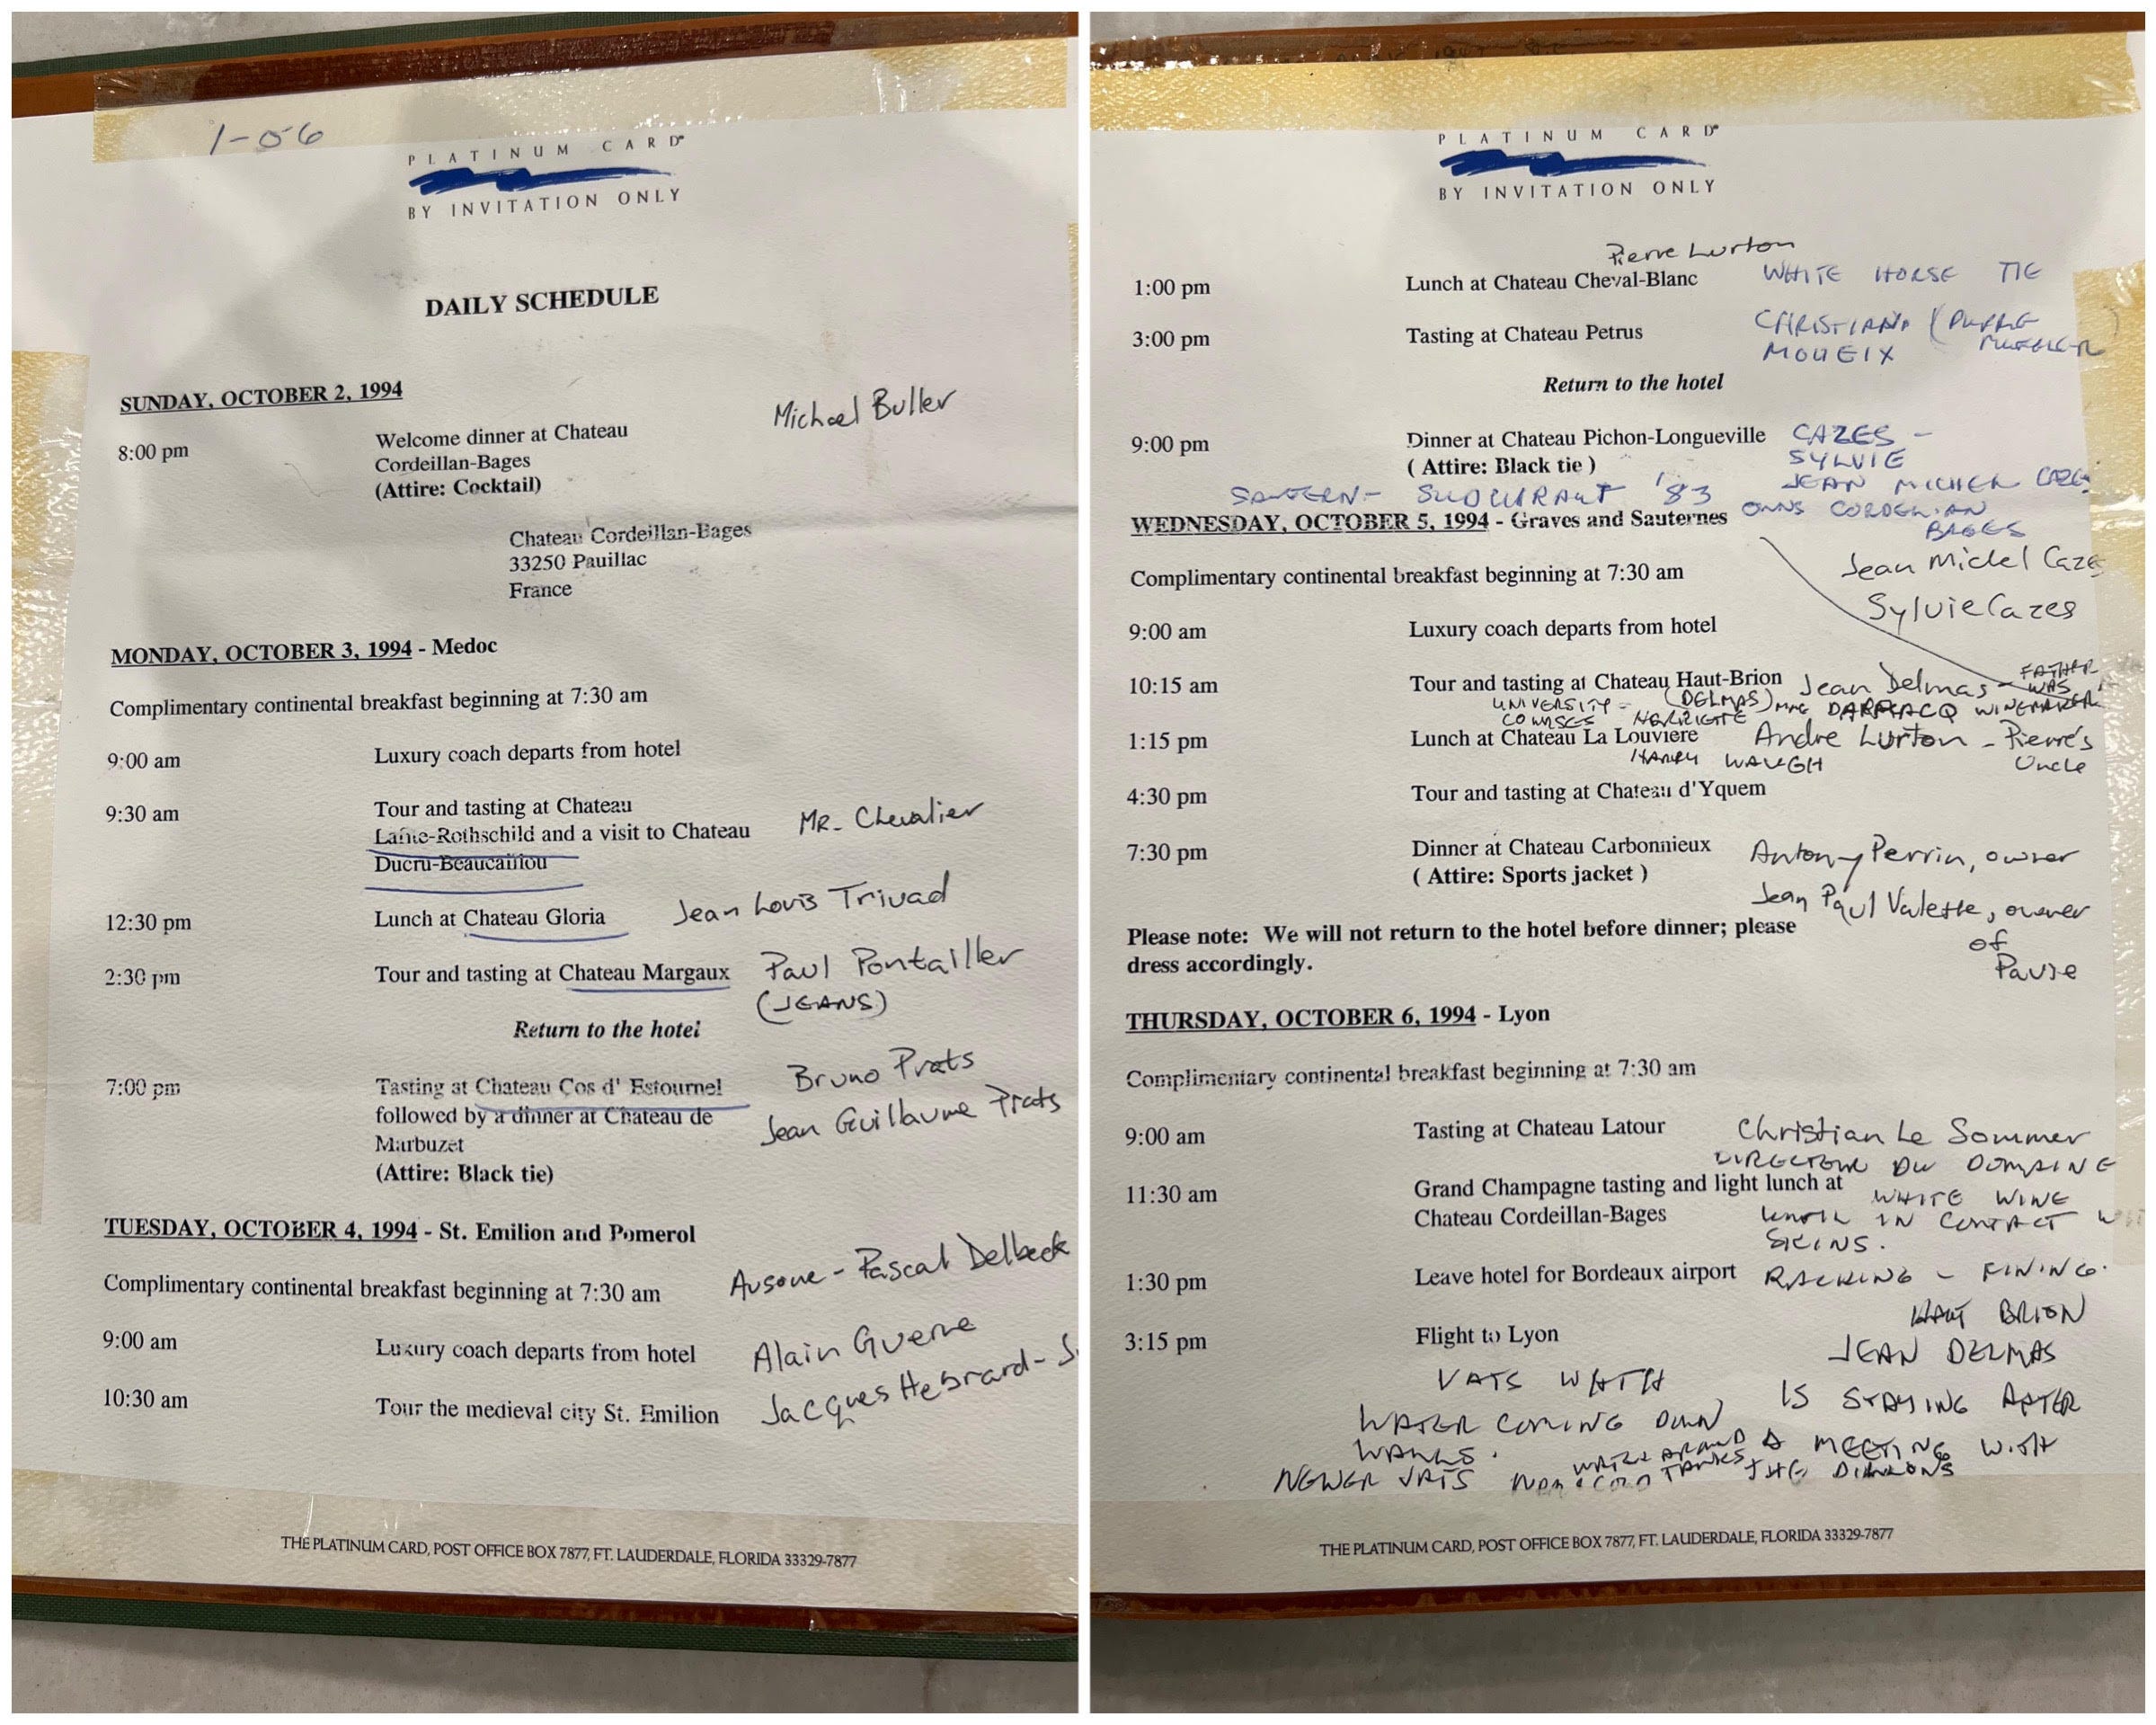 1-06
PLATINUM CARD®
BY INVITATION ONLY
DAILY SCHEDULE
SUNDAY, OCTOBER 2, 1994
Michael Buller
8:00 pm Welcome dinner at Chateau
Cordeillan-Bages
(Attire: Cocktail)
Chateau Cordeillan-Bages
33250 Pauillac
France
MONDAY, OCTOBER 3, 1994 - Medoc
Complimentary continental breakfast beginning at 7:30 am
9:00 am Luxury coach departs from hotel
9:30 am Tour and tasting at Chateau
Lafite-Rothschild and a visit to Chateau MR. Chevalier
Ducru-Beaucaillou
12:30 pm Lunch at Chateau Gloria Jean Louis Trivad
2:30 pm Tour and tasting at Chateau Margaux Paul Pontailler
(JEANS)
Return to the hotel
7:00 pm Tasting at Chateau Cos d' Estournel Bruno Prats
followed by a dinner at Chateau de Jean Guillaume Prats
Marbuzet
(Attire: Black tie)
TUESDAY, OCTOBER 4, 1994 - St. Emilion and Pomerol
Complimentary continental breakfast beginning at 7:30 am Ausone - Pascal Delbeck
9:00 am Luxury coach departs from hotel Alain Guerre
10:30 am Tour the medieval city St. Emilion Jacques Hebrard -
THE PLATINUM CARD, POST OFFICE BOX 7877, FT. LAUDERDALE, FLORIDA 33329-7877
PLATINUM CARD®
BY INVITATION ONLY
Pierre Lurton
1:00 pm Lunch at Chateau Cheval-Blanc WHITE HORSE TIE
3:00 pm Tasting at Chateau Petrus CHRISTIAN (PURPLE
MOUEIX
Return to the hotel
9:00 pm Dinner at Chateau Pichon-Longueville CAZES -
( Attire: Black tie ) SYLVIE
SAUTERN - SUDUIRAUT '83 JEAN MICHEL CAZES
WEDNESDAY, OCTOBER 5, 1994 - Graves and Sauternes OWNS CORDEILIAN
BAGES
Complimentary continental breakfast beginning at 7:30 am Jean Michel Cazes
Sylvie Cazes
9:00 am Luxury coach departs from hotel
10:15 am Tour and tasting at Chateau Haut-Brion Jean Delmas - FATHER
WAS
UNIVERSITY - (DELMAS) WINEMAKER
COURSES HENRIETTE
1:15 pm Lunch at Chateau La Louviere Andre Lurton - Pierre's
HARRY WAUGH Uncle
4:30 pm Tour and tasting at Chateau d'Yquem
7:30 pm Dinner at Chateau Carbonnieux Antony Perrin, owner
( Attire: Sports jacket ) Jean Paul Valette, owner
of
Pavie
Please note: We will not return to the hotel before dinner; please
dress accordingly.
THURSDAY, OCTOBER 6, 1994 - Lyon
Complimentary continental breakfast beginning at 7:30 am
9:00 am Tasting at Chateau Latour Christian Le Sommer
DIRECTEUR DU DOMAINE
11:30 am Grand Champagne tasting and light lunch at WHITE WINE
Chateau Cordeillan-Bages IN CONTACT
SKINS.
1:30 pm Leave hotel for Bordeaux airport RACKING - FINING.
HAUT BRION
3:15 pm Flight to Lyon JEAN DELMAS
VATS WITH IS STAYING AFTER
WATER COMING DOWN
WALLS. A MEETING WITH
NEWER VATS WATER AROUND TANKS THE DILLONS
THE PLATINUM CARD, POST OFFICE BOX 7877, FT. LAUDERDALE, FLORIDA 33329-7877